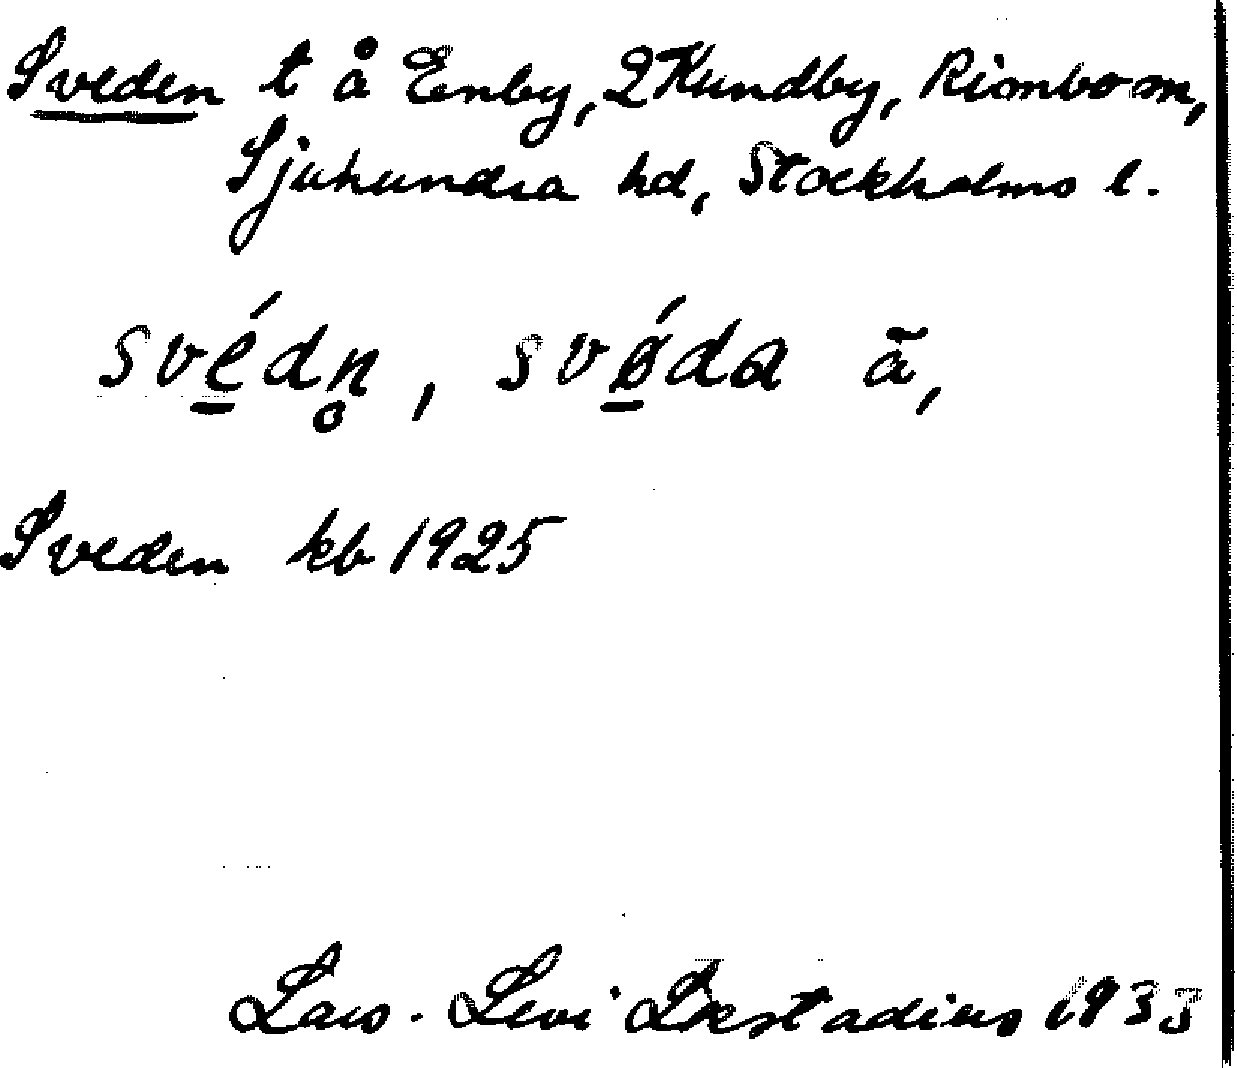 Sveden t å Enby, 2 Kundby, Rimbo sm,
Sjuhundra hd, Stockholms l.
své̠dn̥, svǿ̠da ã,
Sveden kb 1925
Lars-Levi Læstadius 1933